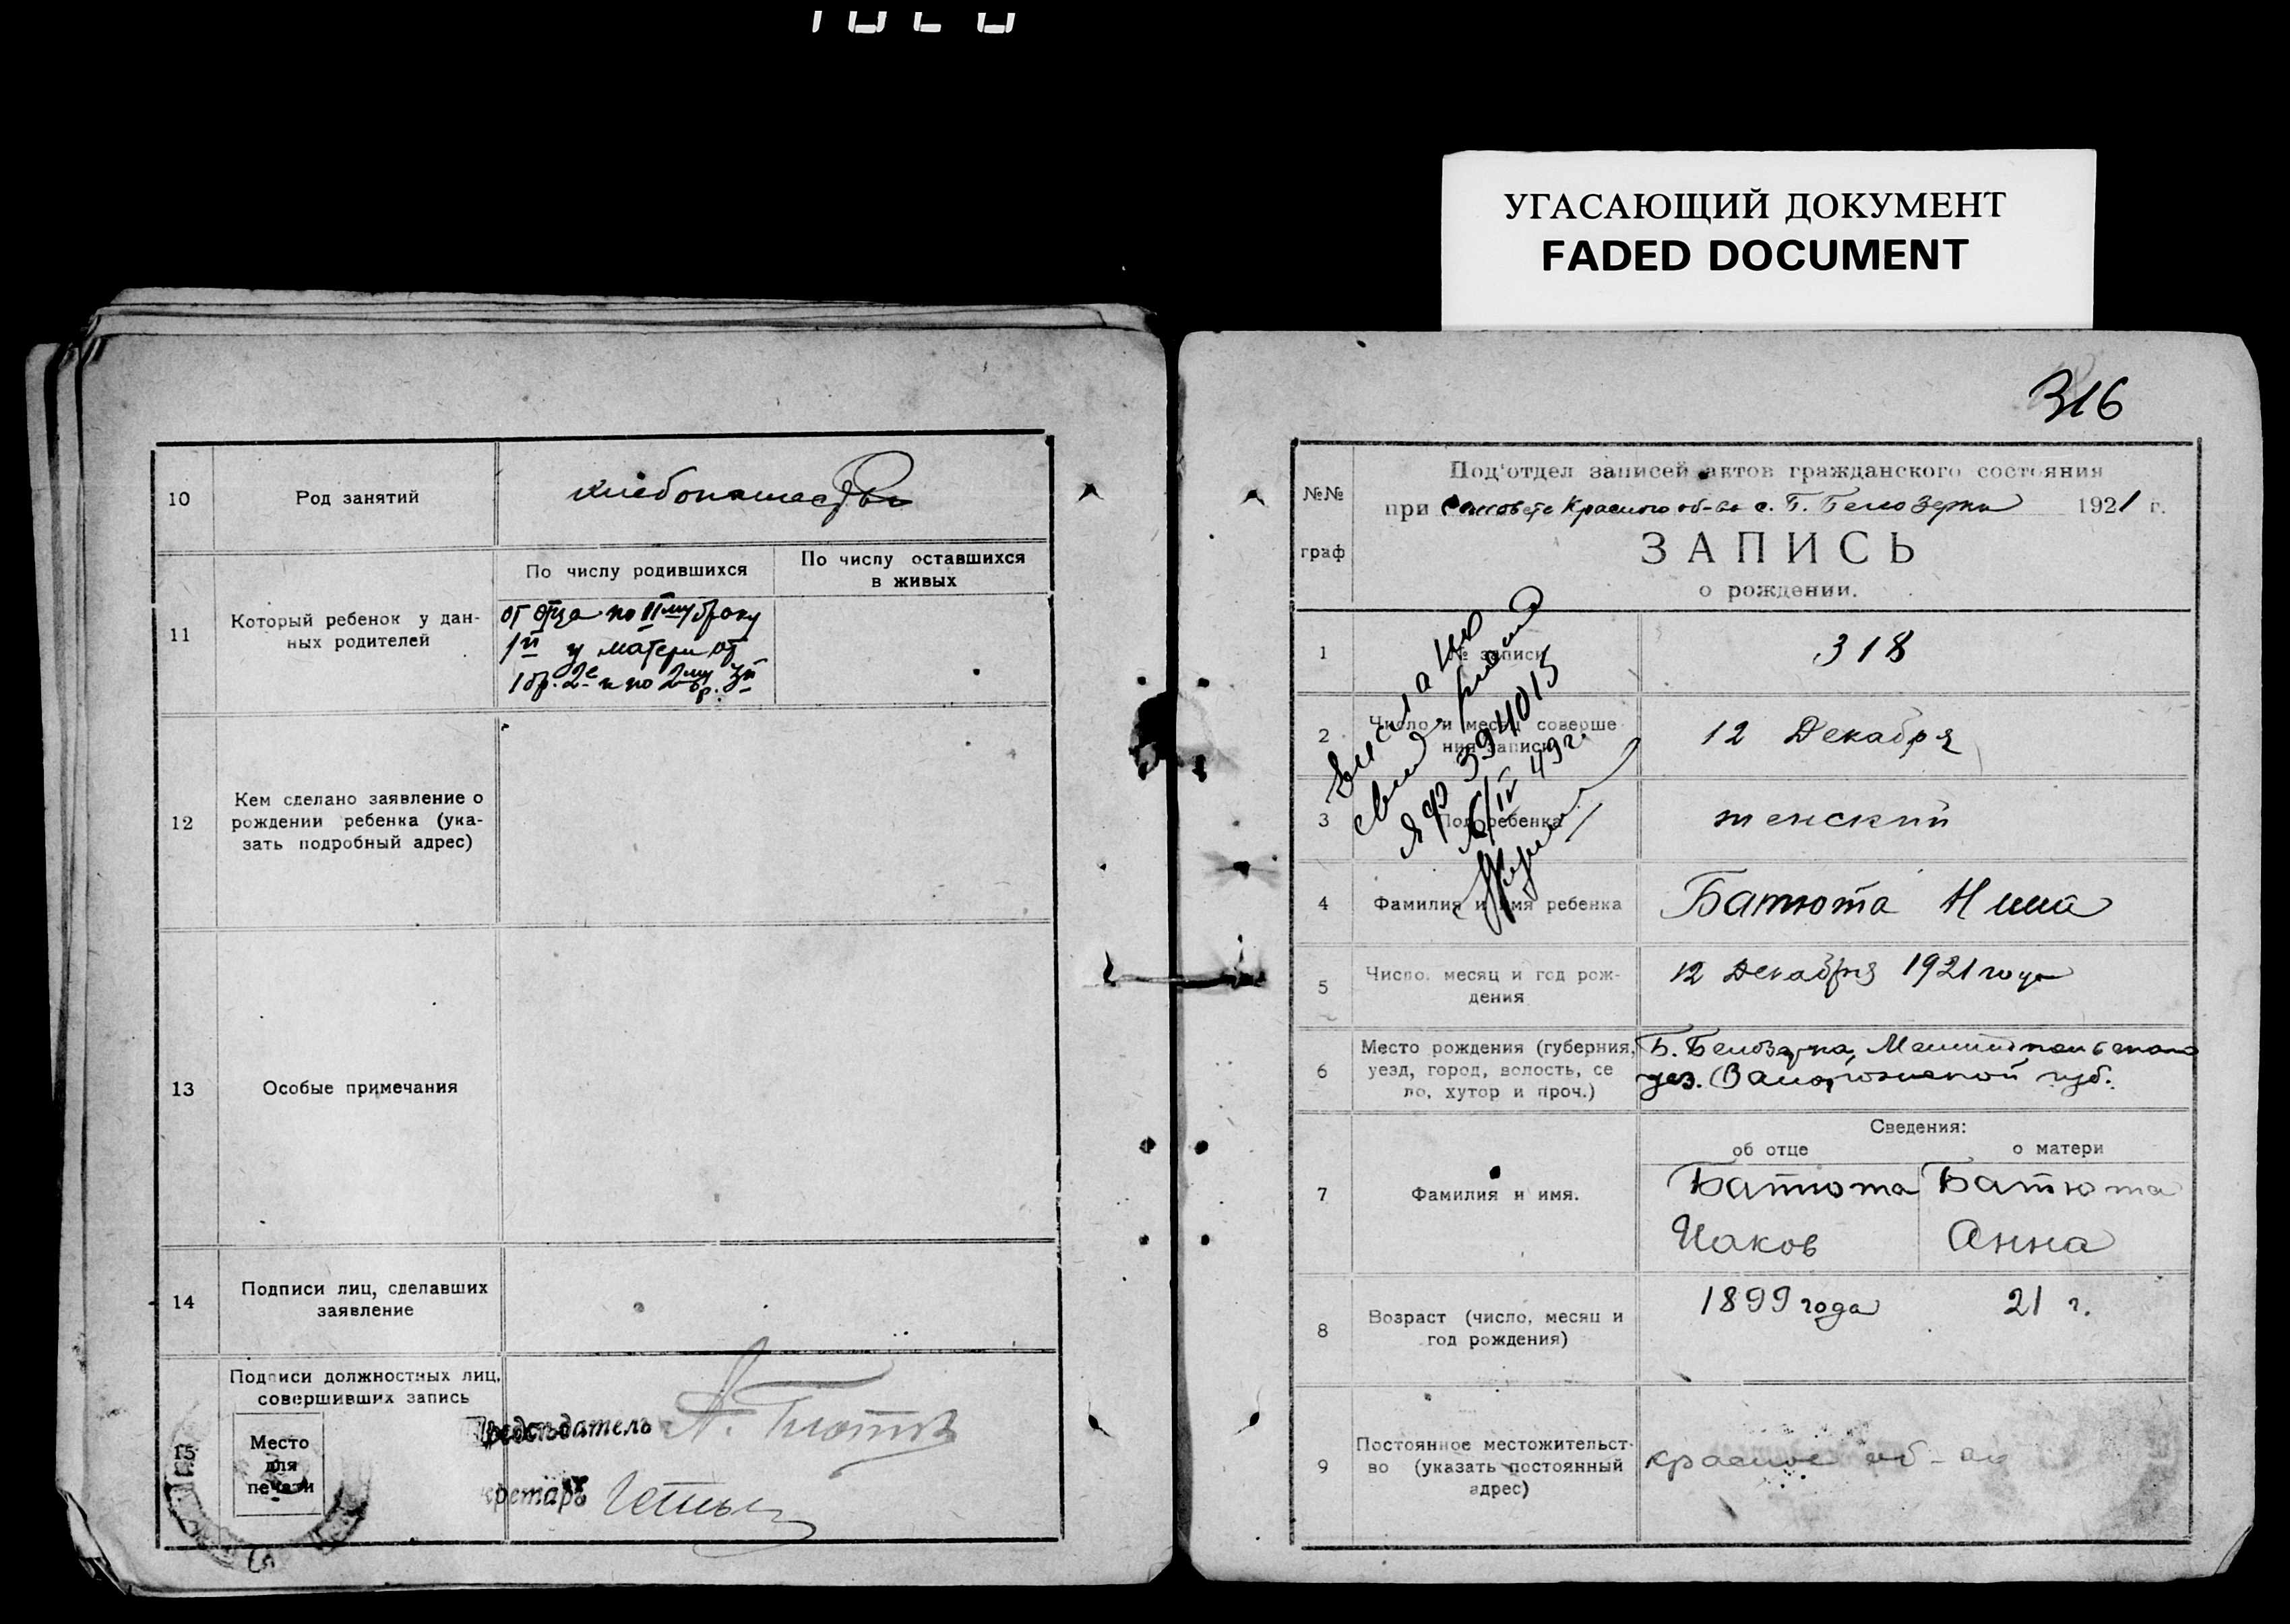 УГАСАЮЩИЙ ДОКУМЕНТ
FADED DOCUMENT
10 Род занятий
11 Который ребенок у дан-
ных родителей
По числу родившихся
По числу оставшихся
в живых
от отца по IIму браку
1й у матери от
1 бр. 2е и по 2му бр. 3й
12 Кем сделано заявление о
рождении ребенка (ука-
зать подробный адрес)
13 Особые примечания
14 Подписи лиц, сделавших
заявление
15 Подписи должностных лиц,
совершивших запись
Место
для
печати
Председатель А.
кретарь
316
№№
граф
Под'отдел записей актов гражданского состояния
при Красного об-ва с. Б. Белозерки 1921 г.
ЗАПИСЬ
о рождении.
1 № записи 318
2 Число и месяц соверше-
ния записи 12 Декабря
3 Пол ребенка женский
4 Фамилия и имя ребенка Батюта Нина
5 Число, месяц и год рож-
дения 12 Декабря 1921 года
6 Место рождения (губерния,
уезд, город, волость, се
ло, хутор и проч.)
Б. Белозерка, Мелитопольского
уез. Запорожской губ.
Сведения:
об отце о матери
7 Фамилия и имя.
Батюта Батюта
Иаков Анна
8 Возраст (число, месяц и
год рождения)
1899 года 21 г.
9 Постоянное местожительст-
во (указать постоянный
адрес)
красное об-во
свид.
ЯФ 394015
6/IV 49 г.